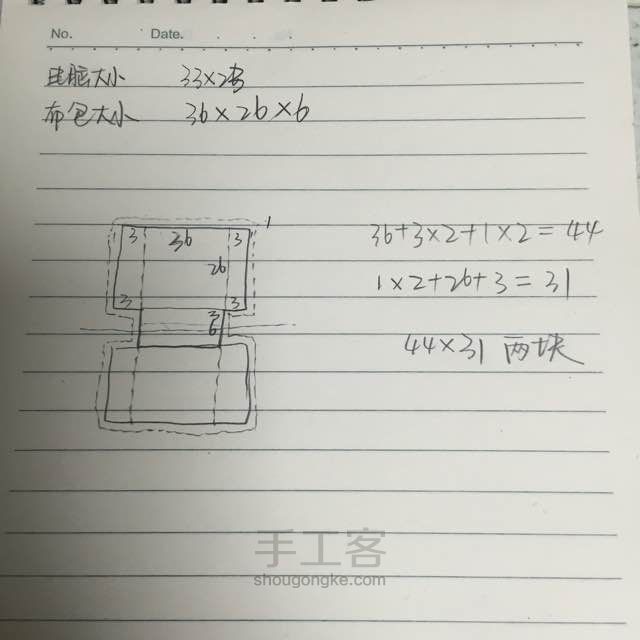 No. Date.
电脑大小 33×23
布包大小 36×26×6
1
3 36 3
26
3 3
3
6
36+3×2+1×2=44
1×2+26+3=31
44×31 两块
手工客
shougongke.com